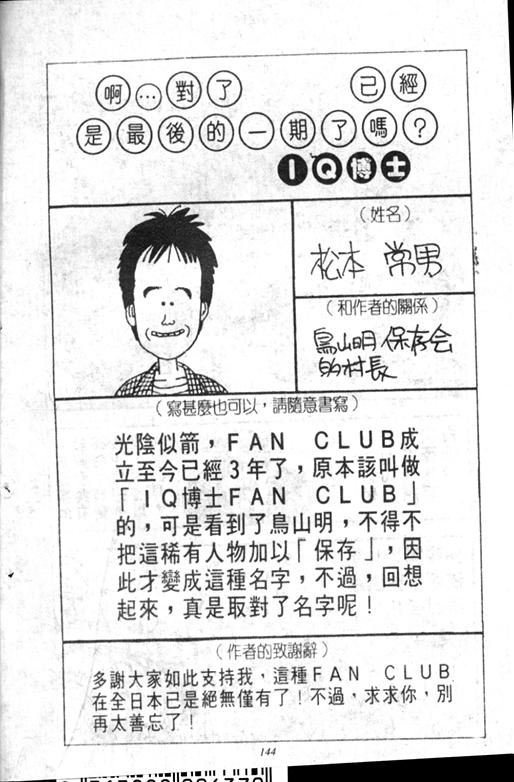 啊…對了 已經
是最後的一期了嗎？
IQ博士
（姓名）
松本 常男
（和作者的關係）
鳥山明保存会
的村長
（寫甚麼也可以，請隨意書寫）
光陰似箭，FAN CLUB成
立至今已經3年了，原本該叫做
「IQ博士FAN CLUB」
的，可是看到了鳥山明，不得不
把這稀有人物加以「保存」，因
此才變成這種名字，不過，回想
起來，真是取對了名字呢！
（作者的致謝辭）
多謝大家如此支持我，這種FAN CLUB
在全日本已是絕無僅有了！不過，求求你，別
再太善忘了！
144